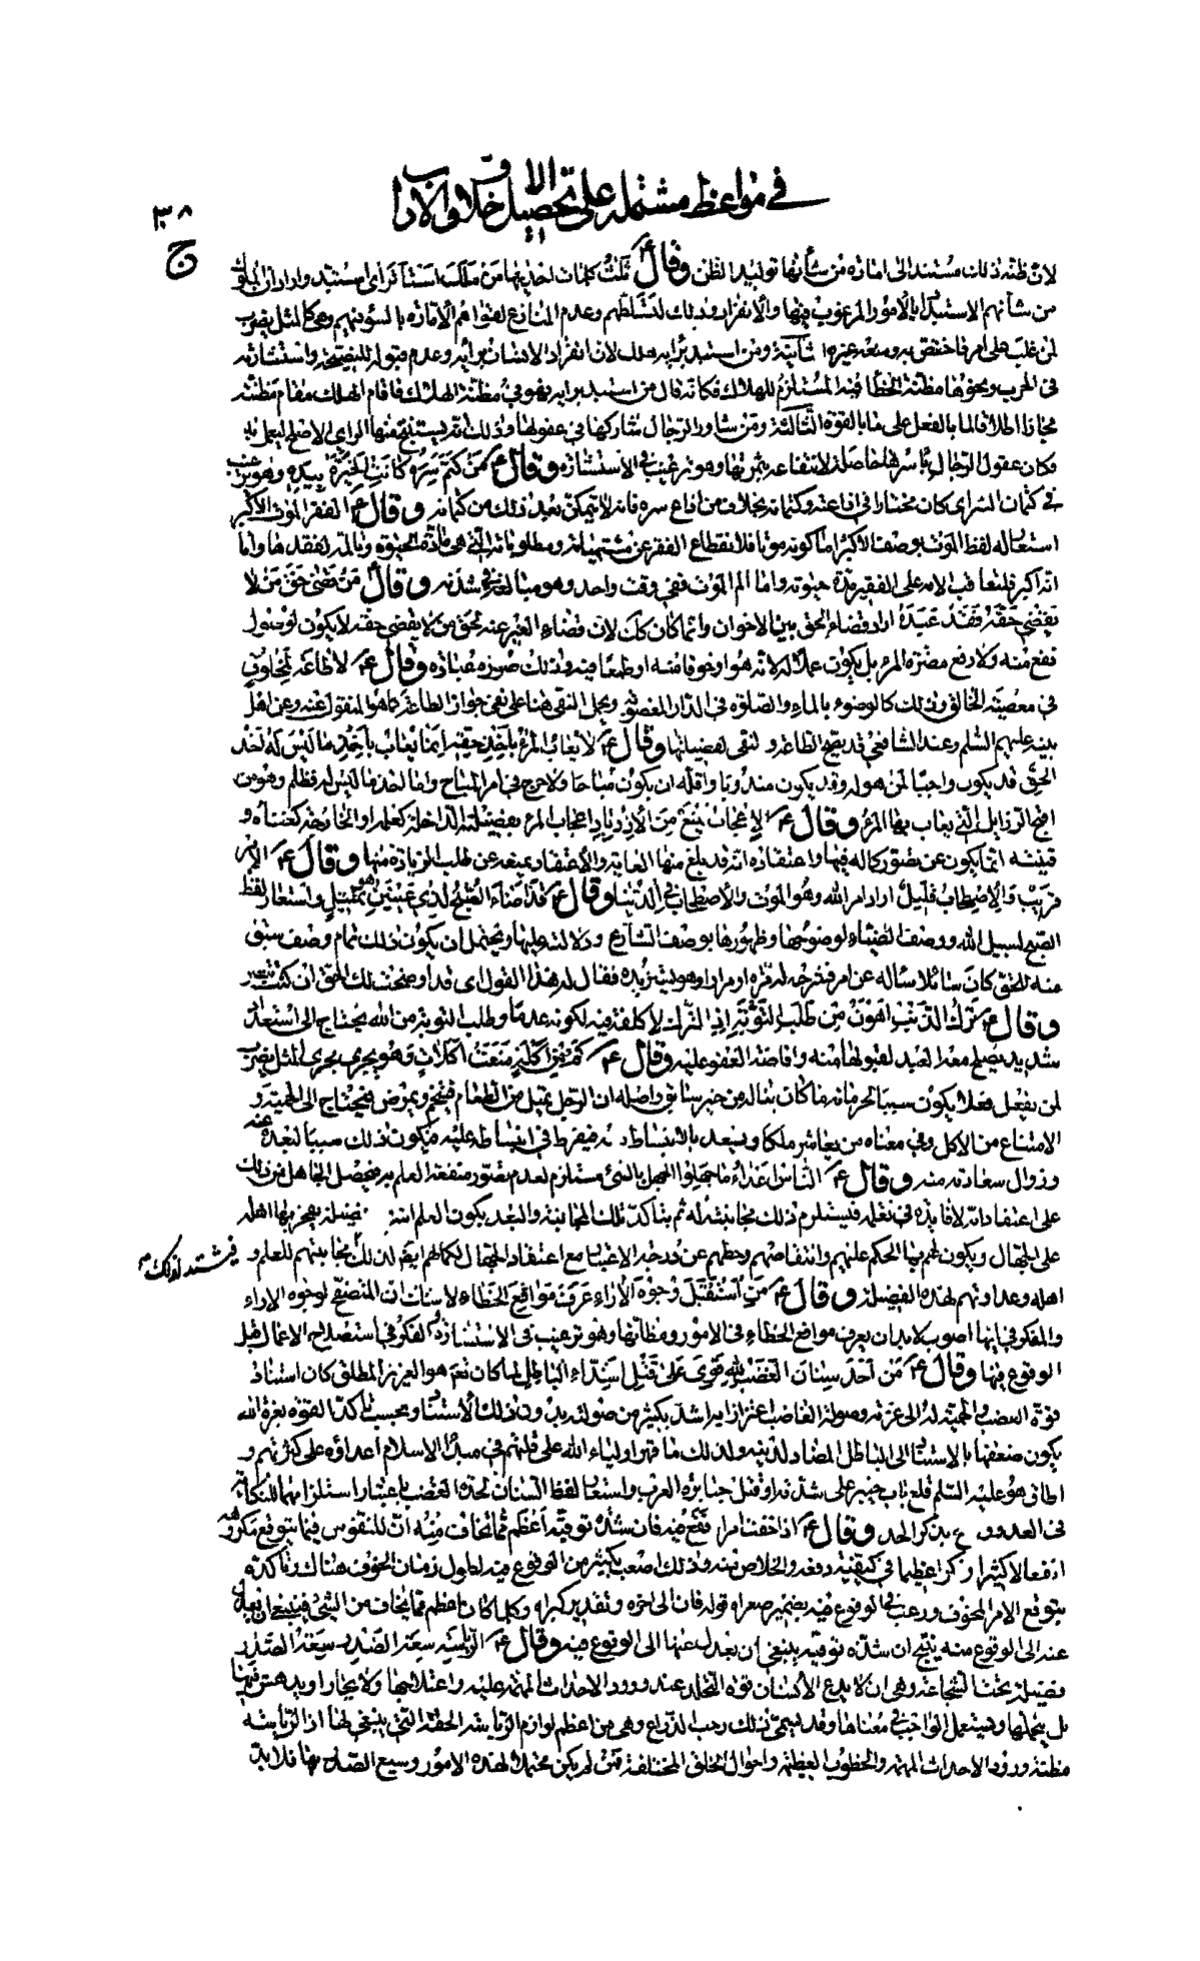 في مواعظ مشتملة على تحصيل الاخلاق والاداب
٣٠٨
ج
لان ظنه ذلك مستند الى امارة من شأنها توليد الظن وقال ع ثلث كلمات احديها من ملك استأثر اى استبد واراد ان الملوك
من شأنهم الاستبداد بالامور المرغوب فيها والانفراد وذلك لتسلطهم وعدم المنازع لهواهم الامارة بالسوء فيهم وهى كالمثل يضرب
لمن غلب على امر فاختص به ومنعه غيره الثانية ومن استبد برايه هلك لان انفراد الانسان برايه وعدم قبوله للنصيحة واستشارته
فى الحرب ونحوها مظنة الخطأ فيه المستلزم للهلاك فكانه قال من استبد برايه فهو فى مظنة الهلاك فاقام الهلاك مقام مظنته
مجازا اطلاقا لما بالفعل على ما بالقوة الثالثة ومن شاور الرجال شاركها فى عقولها وذلك انه يستنتج منها الراى الاصلح ليعمل به
فكان عقول الرجال باسرها حاصلة لانتفاعه بثمرتها وهو ترغيب فى الاستشارة وقال ع من كتم سره كانت الخيرة بيده وهو ترغيب
فى كتمان السر اى كان مختارا فى اذاعته وكتمانه بخلاف من اذاع سره فانه لا يتمكن بعد ذلك من كتمانه وقال ع الفقر الموت الاكبر
استعار له لفظ الموت بوصف الاكبر اما كونه موتا فلانقطاع الفقير عن مشتهياته ومطلوباته التى هى مادة الحيوة وتألمه لفقدها واما
انه اكبر فلتعاقب الامه على الفقير مدة حيوته واما الم الموت ففى وقت واحد وهو مبالغة فى شدته وقال من قضى حق من لا
يقضى حقه فقد عبده اراد قضاء الحق بين الاخوان وانما كان كك لان قضاء الغير عنه لحق من لا يقضى حقه لا يكون لوصول
نفع منه ولا دفع مضرة المرء بل يكون عملا له لانه هو او خوفا منه او طمعا فيه وذلك صورة عبادة وقال ع لا طاعة لمخلوق
فى معصية الخالق وذلك كالوضوء بالماء والصلوة فى الدار المغصوبين ويحمل النفى هنا على نفى جواز الطاعة كما هو المنقول عنه وعن اهل
بيته عليهم السلم وعند الشافعى قد يصح الطاعة ولنفى لفضيلتها وقال ع لا يعاب المرء باخذ حقه انما يعاب باخذ ما ليس له اخذ
الحق قد يكون واجبا لمن هو له وقد يكون مندوبا واقله ان يكون مباحا ولا حرج فى امر المباح واما اخذ ما ليس له فظلم وهو من
اقبح الرذايل التى يعاب بها المرء وقال ع الاعجاب يمنع من الازدياد اعجاب المرء بفضيلته الداخلة كعلمه او الخارجة كغناه و
قينته انما يكون عن تصور كماله فيها واعتقاده انه قد بلغ منها الغاية والاعتقاد يمنعه عن طلب الزيادة منها وقال ع الامر
قريب والاصطحاب قليل اراد امر الله وهو الموت والاصطحاب فى الدنيا وقال ع قد اضاء الصبح لذى عينين هو تمثيل واستعار لفظ
الصبح لسبيل الله ووصف الضياء لوضوحها وظهورها بوصف الشارع ودلالته عليها ويحتمل ان يكون ذلك تمام وصف سبق
منه للحق كان سائلا سأله عن امر فخرجه له مرة او مرارا وهو يستزيده فقال له هذا القول اى قد اوضحت لك الحق ان كنت تبصر
وقال ع ترك الذنب اهون من طلب التوبة اذ الترك لا كلفة فيه لكونه عدما وطلب التوبة من الله يحتاج الى استعداد
شديد يصلح معه العبد لقبولها منه وافاضة العفو عليه وقال ع كم من اكلة منعت اكلات وهو يجرى مجرى المثل يضرب
لمن يفعل فعلا يكون سببا لحرمانه ما كان يناله من خير سابق واصله ان الرجل يمتلى من الطعام فيتخم ويمرض فيحتاج الى الحمية و
الامتناع من الاكل وفى معناه من يعاشر ملكا ويسعد بالانبساط فيفرط فى انبساطه عليه فيكون ذلك سببا لبعده عنه
وزوال سعادته منه وقال ع الناس اعداء ما جهلوا الجهل بالشىء مستلزم لعدم تصور منفعة العلم به فيحصل الجاهل من ذلك
على اعتقاد انه لا فايدة فى تعلمه فيستلزم ذلك مجانبته له ثم يتأكد تلك المجانبة والبعد بكون العلم اشد فضيلة يفخر بها اهله
على الجهال ويكون لهم بها الحكم عليهم وانتقاصهم وحطهم عن درجة الاعتبار مع اعتقاد الجهال لكمالهم ايض لذلك مجانبتهم للعلم و
فيشتد لذلك
اهله وعداوتهم لهذه الفضيلة وقال ع من استقبل وجوه الاراء عرف مواقع الخطاء لاستنان المتصفح لوجوه الاراء
والمفكر فى ايها اصوب لابد ان يعرف مواقع الخطاء فى الامور ومظانها وهو ترغيب فى الاستشارة والفكر فى استصلاح الاعمال قبل
الوقوع فيها وقال ع من احد سنان الغضب لله قوى على قتل اشداء الباطل لما كان تعم هو العزيز المطلق كان استناد
قوة الغضب والحمية له الى عزته وصولة الغاضب اعتزازا به اشد بكثير من صولته بدون ذلك الاستناد وبحسب تأكد القوة بعزة الله
يكون ضعفها بالاستناد الى الباطل المضاد لدينه ولذلك ما قهر اولياء الله على قلتهم فى مبدأ الاسلام اعداؤه على كثرتهم و
اطاق هو عليه السلم قلع باب خيبر على شدته وقتل جبابرة العرب واستعار لفظ السنان لحدة الغضب باعتبار استلزامهما للنكاية
فى العدو ورشح بذكر الحد وقال ع اذا خفت امرا فقع فيه فان شدة توقيه اعظم مما تخاف منه ان للنفوس فيما يتوقع مكروهه
انفعالا كثيرا وفكرا عظيما فى كيفية دفعه والخلاص منه وذلك اصعب بكثير من الوقوع فيه لطول زمان الخوف هناك وتأكده
بتوقع الامر المخوف ورغب فى الوقوع فيه بضمير صغراه قوله فان الى اخره وتقدير كبراه وكلما كان اعظم مما يخاف من الشىء فينبغى ان يعدل
عنه الى الوقوع منه ينتج ان شدة توقيه ينبغى ان يعدل عنها الى الوقوع فيه وقال ع الة الرياسة سعة الصدر سعة الصدر
فضيلة تحت الشجاعة وهى ان لا يدع الانسان قوة التجلد عند ورود الاحداث المهمة عليه واعتلاجها ولا يحار او يدهش فيها
بل يحملها ويستعمل الواجب فى معناها وقد يسمى ذلك رحب الذراع وهى من اعظم لوازم الرياسة الحقة التى ينبغى لها اذ الرياسة
مظنة ورود الاحداث المهمة والخطوب العظيمة واحوال الخلق المختلفة فمن لم يكن محتملا لهذه الامور وسيع الصدر بها فلابد